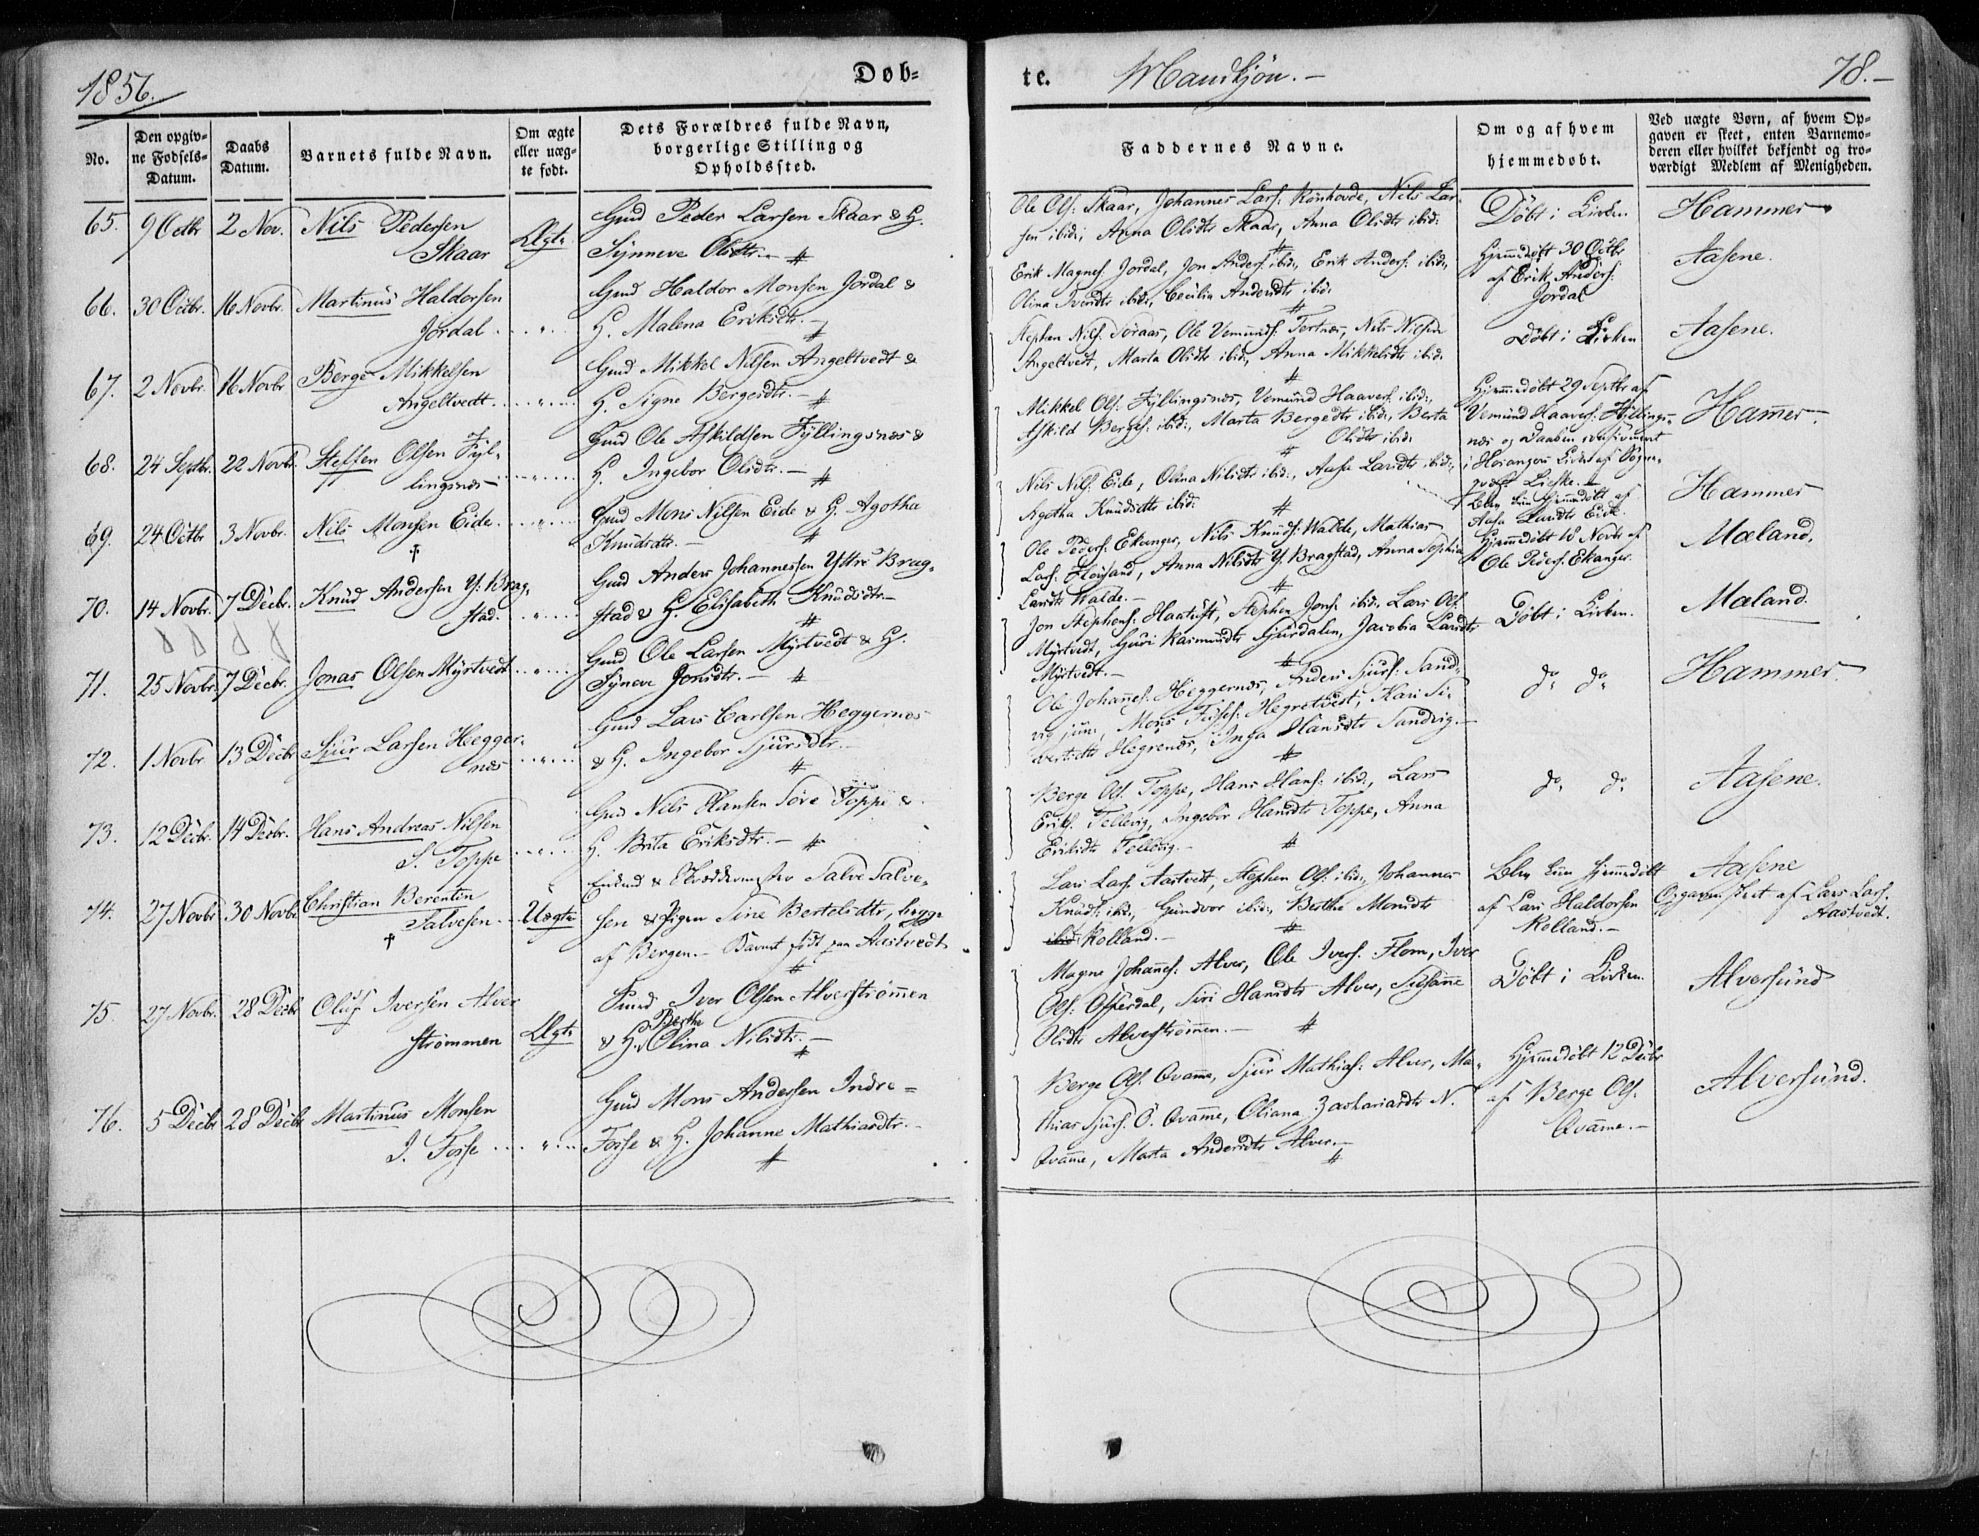 1856.
Døb-
No.
Den opgiv-
ne Fødsels-
Datum.
Daabs
Datum.
Barnets fulde Navn.
Om ægte
eller uæg-
te født.
Dets Forældres fulde Navn,
borgerlige Stilling og
Opholdssted.
65. 9 Octbr 2 Nov. Nils Pedersen
Skaar Ægte
Gmd Peder Larsen Skaar & H.
Synneve Olsdtr. -
66. 30 Octbr. 16 Novbr. Martinus Haldorsen
Jordal
Gmd Haldor Monsen Jordal &
H. Malena Eriksdtr. -
67. 2 Novbr. 16 Novbr Berge Mikkelsen
Angeltvedt
Gmd Mikkel Nilsen Angeltvedt &
H. Signe Bergesdtr. -
68. 24 Septbr. 22 Novbr. Steffen Olsen Fyl-
lingsnæs -
Gmd Ole Askildsen Fyllingsnæs &
H. Ingebor Olsdtr. -
69. 24 Octbr 3 Novbr. Nils Monsen Eide
†
Gmd Mons Nilsen Eide & H. Agotha
Knudsdtr. -
70. 14 Novbr. 7 Decbr. Knud Andersen Y. Brag-
stad.
Gmd Anders Johannessen Yttre Brag-
stad & H. Elisabeth Knudsdtr. -
71. 25 Novbr. 7 Decbr. Jonas Olsen Myrtvedt
Gmd Ole Larsen Myrtvedt & H.
Syneve Jonsdtr. -
72. 1 Novbr 13 Decbr Sjur Larsen Hegger-
næs
Gmd Lars Carlsen Heggernæs
& H. Ingebor Sjursdtr. -
73. 12 Decbr. 14 Decbr. Hans Andreas Nilsen
S. Toppe
Gmd Nils Hansen Søre Toppe &
H. Brita Eriksdtr. -
74. 27 Novbr 30 Novbr. Christian Berentin
Salvesen †
Uægte
Salve Salve-
sen & Pigen Sine Bertelsdtr, begge
af Bergen. - Barnet født paa Aastvedt
75. 27 Novbr. 28 Decbr Oluf Iversen Alver
strømmen Ægte
Iver Olsen Alverstrømmen
Berthe
& H. Olina Nilsdtr. -
76. 5 Decbr 28 Decbr Martinus Monsen
I. Fosse
Gmd Mons Andersen Indre-
Fosse & H. Johanne Mathiasdtr. -
te. Mandkjøn. -
78. -
Faddernes Navne.
Om og af hvem
hjemmedøbt.
Ved uægte Børn, af hvem Op-
gaven er skeet, enten Barnemo-
deren eller hvilket bekjendt og tro-
værdigt Medlem af Menigheden.
Ole Ols: Skaar, Johannes Lars: Rønhovde, Nils Lar-
sen ibid:, Anna Olsdtr Skaar, Anna Olsdtr ibid:
Døbt i Kirken
Hammer
Erik Magnes: Jordal, Jon Anders: ibid:, Erik Anders: ibid:,
Olina Iversdtr ibid:, Cecilia Andersdtr ibid:
Hjemmedøbt 30 Octbr
af Erik Anders:
Jordal
Aasene.
Stephen Nils: Toraas, Ole Vemunds: Tertnæs, Nils Nilsen
Angeltvedt, Marta Olsdtr ibid:, Anna Mikkelsdtr ibid:
Døbt i Kirken
Aasene.
Mikkel Ols: Fyllingsnæs, Vemund Haavers: ibid:,
Askild Berges: ibid:, Marta Bergesdtr ibid:, Berta
Olsdtr ibid:
Hjemmedøbt 29 Septbr af
Vemund Haavers: Fyllings-
næs og Daaben confirmeret
i Hosanger Kirke af Sogne-
Hammer.
Nils Nils: Eide, Olina Nilsdtr ibid:, Aasa Larsdtr ibid:,
Agotha Knudsdtr ibid:
Blev kun hjemmedøbt af
Aasa Larsdtr Eide.
Hammer
Ole Peders: Ekanger, Nils Knuds: Walde, Mathias
Lars: Fløisand, Anna Nilsdtr Y. Bragstad, Anna Sophia
Larsdtr Walde. -
Hjemmedøbt 18 Novbr af
Ole Peders: Ekanger
Mæland.
Jon Stephens: Haatuft, Stephen Jons: ibid:, Lars Ols:
Myrtvedt, Guri Rasmusdtr Sjursdalen, Jacobia Larsdtr
Myrtvedt. -
Døbt i Kirken.
Mæland.
Ole Johannes: Heggernæs, Anders Sjurs: Sand-
vig jun:, Mons Hegretvedt, Kari Si-
vertsdtr Hegrenæs, Inga Hansdtr Sandvig. -
do do
Hammer.
Berge Ols: Toppe, Hans Hans: ibid:, Lars
Eriks: Tellevig, Ingebor Hansdtr Toppe, Anna
Eriksdtr Tellevig. -
do do
Aasene.
Lars Lars: Aastvedt, Stephen Ols: ibid:, Johannes
Knuds: ibid:, Gundvor ibid:, Berthe Monsdtr
ibid Rolland. -
Blev kun hjemmedøbt
af Lars Haldorsen
Rolland. -
Aasene
Opgaven skeet af Lars Lars:
Aastvedt.
Magne Johannes: Alver, Ole Ivers: Flom, Iver
Ols: Offerdal, Siri Hansdtr Alver, Susanne
Olsdtr Alverstrømmen. -
Døbt i Kirken.
Alversund
Berge Ols: Qvamme, Sjur Mathias: Alver, Ma-
thias Sjurs: Ø. Qvamme, Oliana Zachariasdtr N.
Qvamme, Marta Andersdtr Alver. -
Hjemmedøbt 12 Decbr
af Berge Ols:
Qvamme. -
Alversund.